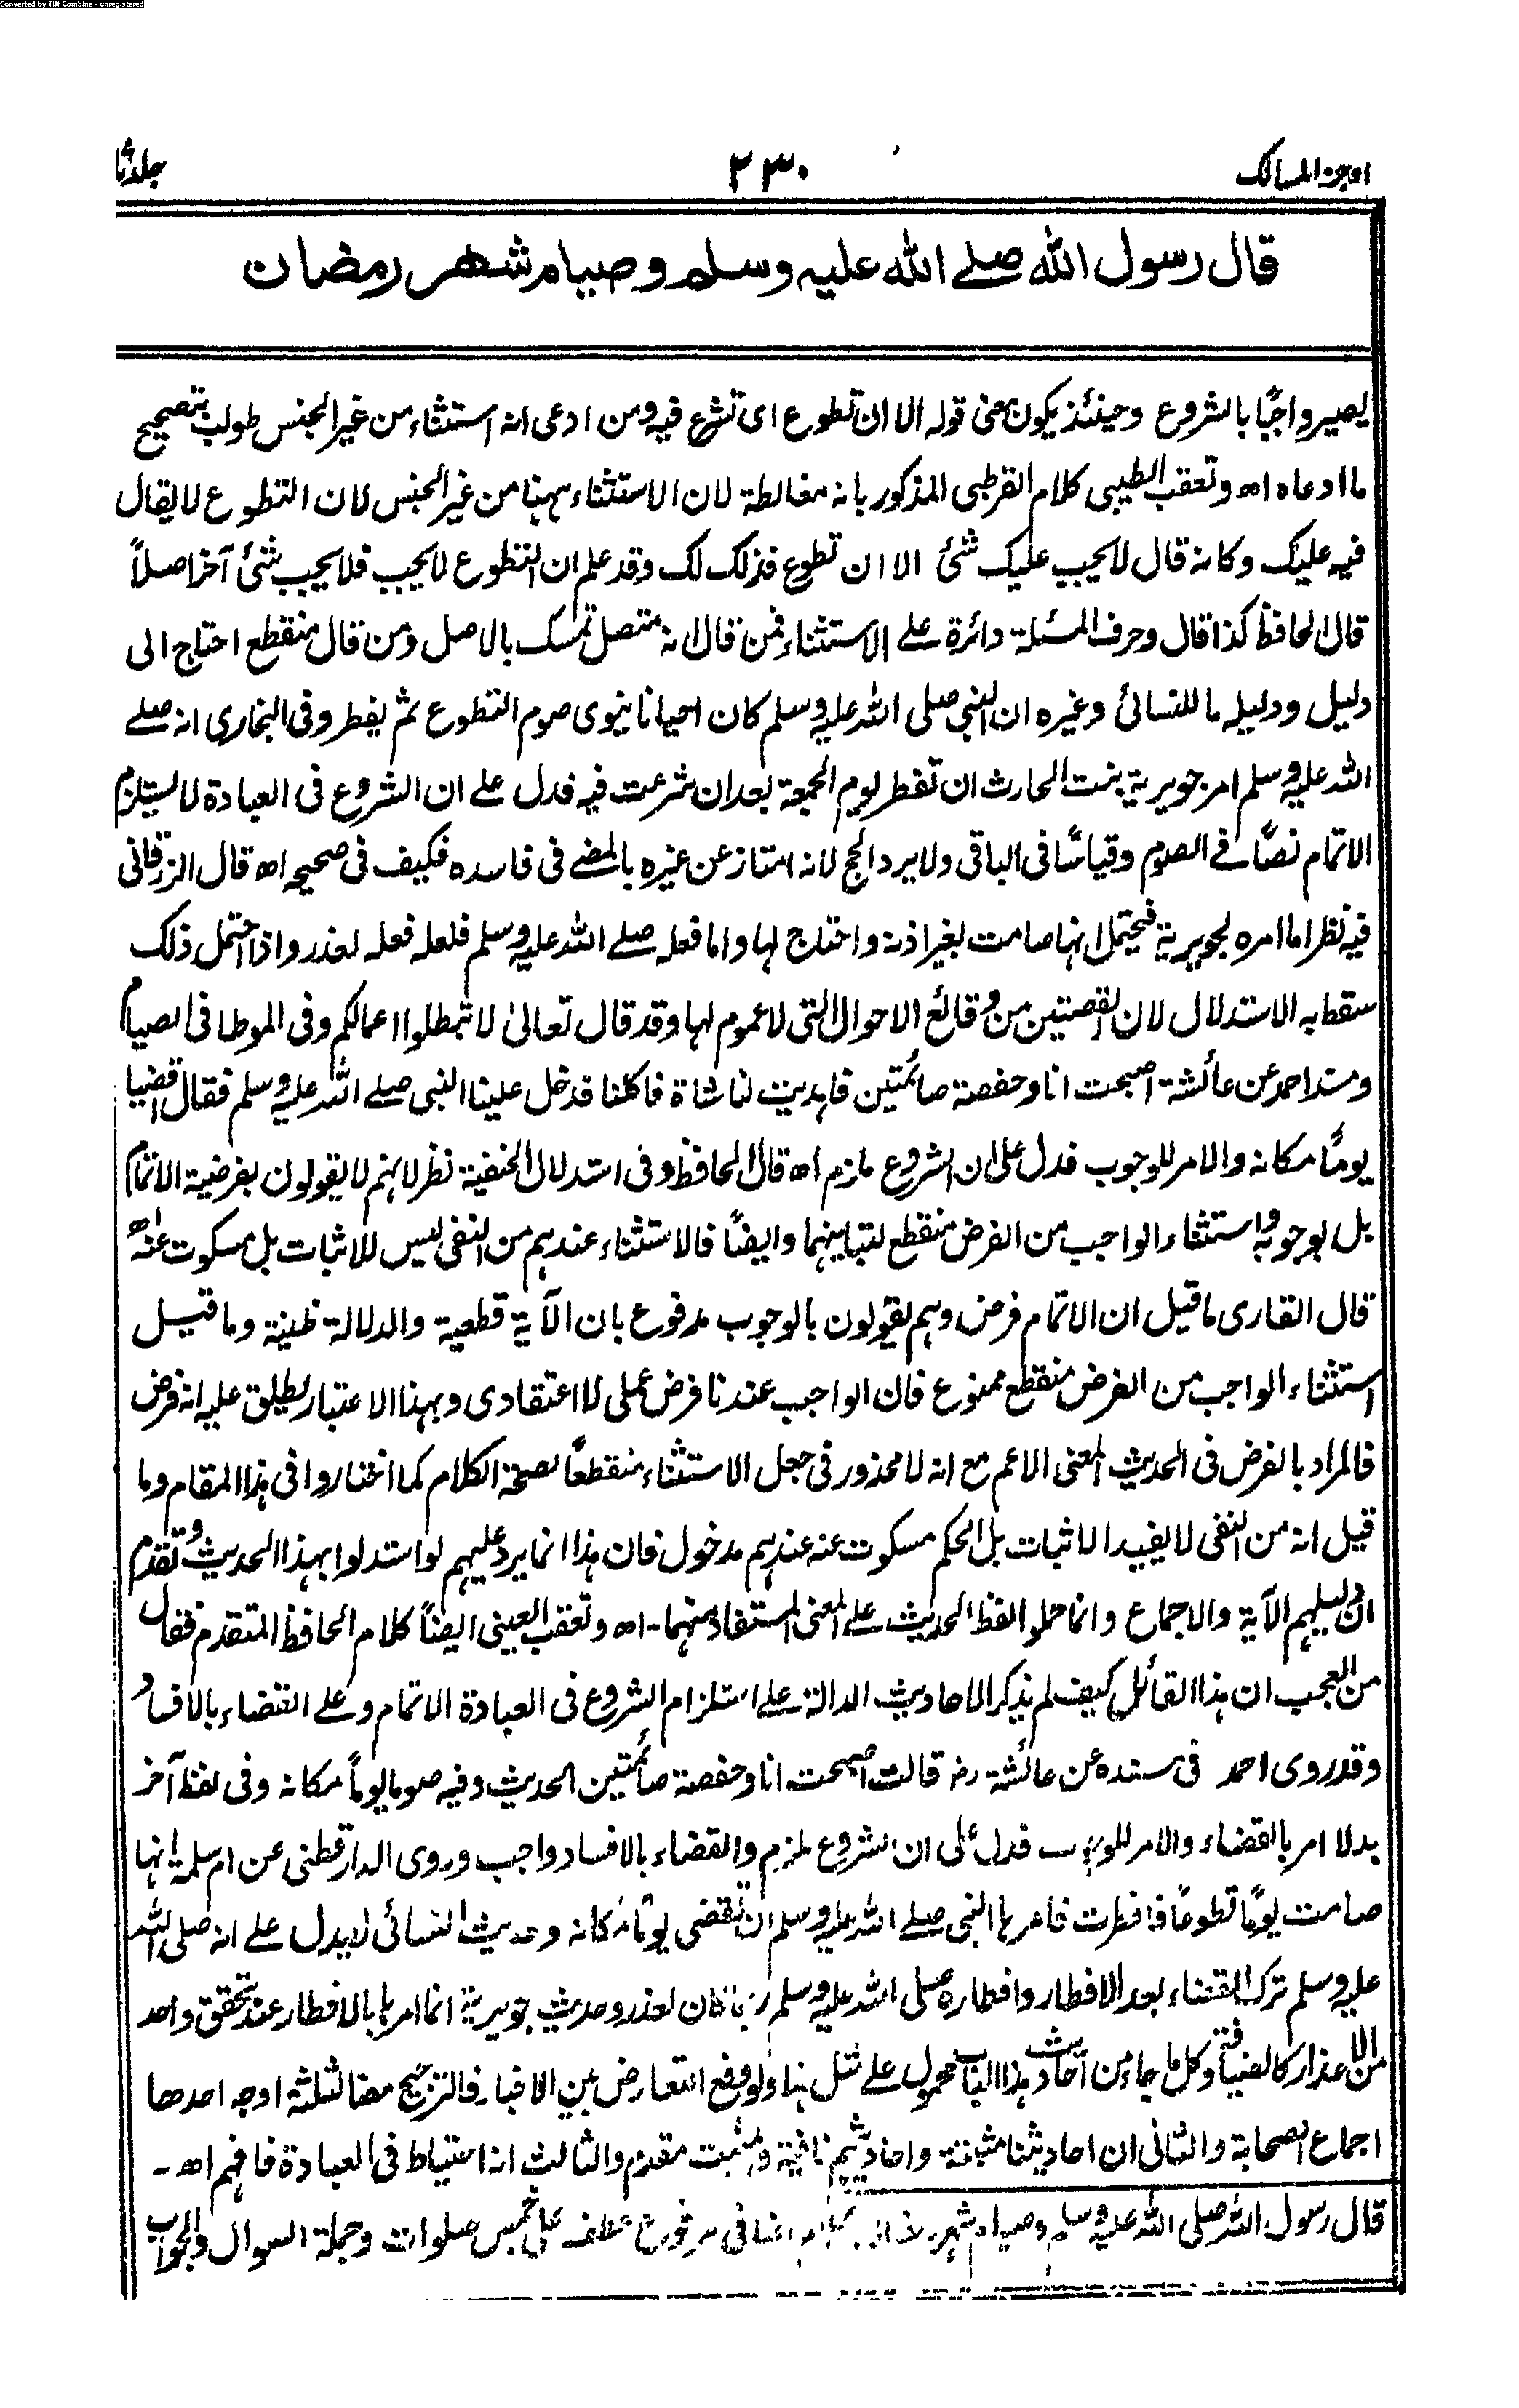 Converted by Tiff Combine - unregistered
اوجز المسالك
٢٣٠
جلد ثا
قال رسول الله صلے الله عليہ وسلم وصيام شهر رمضان
يصير واجبًا بالشروع وحينئذ يكون معنى قوله الا ان تطوع اى تشرع فيه ومن ادعى انه استثناء من غير الجنس طولب بتصحيح
ما ادعاه اھ وتعقب الطيبى كلام القرطبى المذكور بانه مغالطة لان الاستثناء ہهنا من غير الجنس لان التطوع لا يقال
فيه عليك وكانه قال لا يجب عليك شئ الا ان تطوع فذلك لك وقد علم ان التطوع لا يجب فلا يجب شئ آخر اصلاً
قال الحافظ كذا قال وحرف المسئلة دائرة علے الاستثناء فمن قال انه متصل تمسك بالاصل ومن قال منقطع احتاج الى
دليل ودليله ما للنسائى وغيره ان النبى صلى الله عليه وسلم كان احيانا ينوى صوم التطوع ثم يفطر وفى البخارى انه صلے
الله عليه وسلم امر جويرية بنت الحارث ان تفطر يوم الجمعة بعد ان شرعت فيه فدل علے ان الشروع فى العبادة لا يستلزم
الاتمام نصًّا فے الصوم وقياسًا فى الباقى ولا يرد الحج لانه امتاز عن غيره بالمضے فى فاسده فكيف فى صحيحه اھ قال الزرقانى
فيه نظر اما امره لجويرية فيحتمل انها صامت بغير اذنه واحتاج لها واما فعله صلے الله عليه وسلم فلعله فعله لعذر واذا احتمل ذلك
سقط به الاستدلال لان القصتين من وقائع الاحوال التى لا عموم لها وقد قال تعالىٰ لا تبطلوا اعمالكم وفى الموطا فى الصيام
ومسند احمد عن عائشة اصبحت انا وحفصة صائمتين فاهديت لنا شاة فاكلنا فدخل علينا النبى صلے الله عليه وسلم فقال اقضيا
يومًا مكانه والامر للوجوب فدل على ان الشروع ملزم اھ قال الحافظ وفى استدلال الحنفية نظر لانهم لا يقولون بفرضية الاتمام
بل بوجوبه واستثناء الواجب من الفرض منقطع لتباينهما وايضًا فالاستثناء عندهم من النفى ليس للاثبات بل مسكوت عنه اھ
قال القارى ما قيل ان الاتمام فرض وهم يقولون بالوجوب مدفوع بان الآية قطعية والدلالة ظنية وما قيل
استثناء الواجب من الفرض منقطع ممنوع فان الواجب عندنا فرض عملى لا اعتقادى وبهذا الاعتبار يطلق عليه انه فرض
فالمراد بالفرض فى الحديث المعنى الاعم مع انه لا محذور فى جعل الاستثناء منقطعاً لصحة الكلام كما اختاروا فى هذا المقام وما
قيل انه من النفى لا يفيد الاثبات بل الحكم مسكوت عنه عندهم مدخول فان هذا انما يرد عليهم لو استدلوا بهذا الحديث وتقدم
ان دليلهم الآية والاجماع وانما حملوا لفظ الحديث علے المعنى المستفاد منهما - اھ وتعقب العينى ايضًا كلام الحافظ المتقدم فقال
من العجب ان هذا القائل كيف لم يذكر الاحاديث الدالة علے استلزام الشروع فى العبادة الاتمام وعلے القضاء بالافساد
وقد روى احمد فى مسنده عن عائشة رض قالت اصبحت انا وحفصة صائمتين الحديث وفيه صوما يوماً مكانه وفى لفظ آخر
بدلا امر بالقضاء والامر للوجوب فدل على ان الشروع ملزم والقضاء بالافساد واجب وروى الدارقطنى عن ام سلمة انها
صامت يومًا تطوعًا فافطرت فامرها النبى صلے الله عليه وسلم ان تقضى يومًا مكانه وحديث النسائى لا يدل علے انه صلى الله
عليه وسلم ترك القضاء بعد الافطار وافطاره صلى الله عليه وسلم ربما كان لعذر وحديث جويرية انما امرها بالافطار عند تحقق واحد
من الاعذار كالضيافة وكل ما جاء من احاديث هذا الباب محمول علے مثل هذا ولو وقع التعارض بين الاخبار فالترجيح معنا لثلثة اوجه احدها
اجماع الصحابة والثانى ان احاديثنا مثبتة واحاديثهم نافية والمثبت مقدم والثالث انه احتياط فى العبادة فافهم اھ -
قال رسول الله صلى الله عليه وسلم وصيام شهر رمضان كلام اضافى مرفوع عطف على خمس صلوات وجملة السوال والجواب